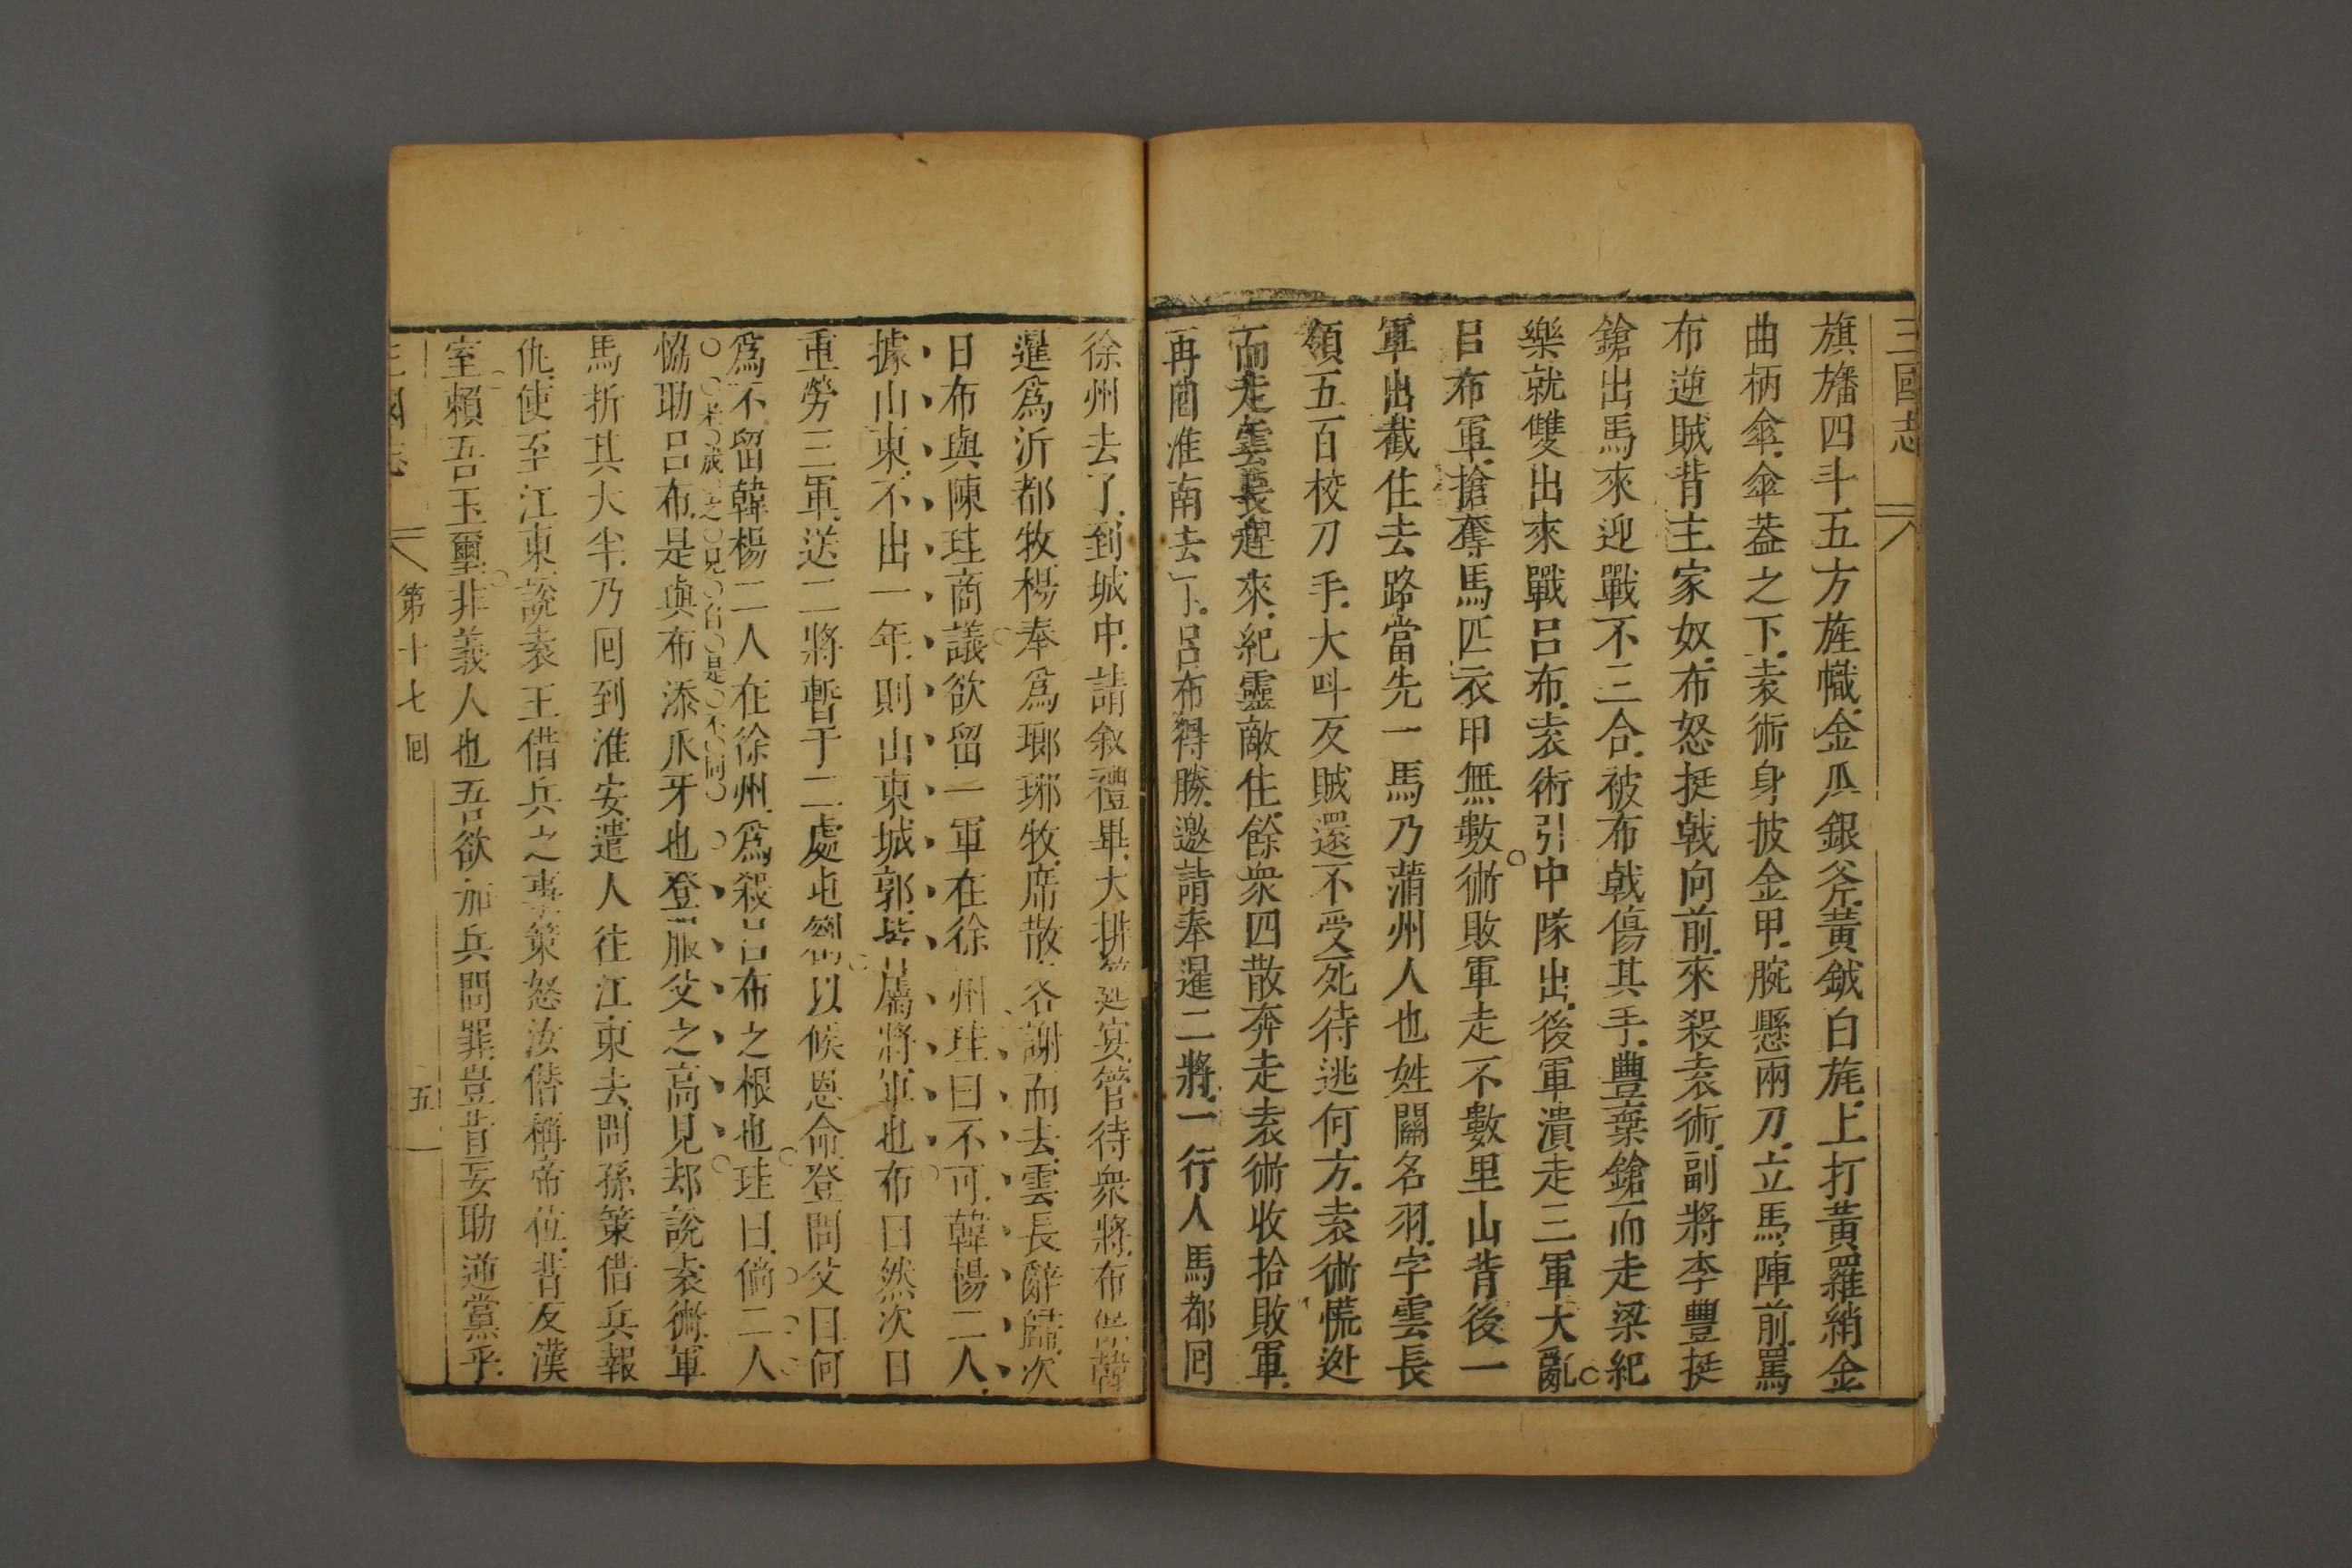 三國志
旗旛四斗五方旌幟金瓜銀斧黃鉞白旄上打黃羅綃金
曲柄傘傘葢之下袁術身披金甲腕懸兩刀立馬陣前罵
布逆賊背主家奴布怒挺戟向前來殺袁術副將李豐挺
鎗出馬來迎戰不三合被布戟傷其手豐棄鎗而走梁紀
樂就雙出來戰呂布袁術引中隊出後軍潰走三軍大亂
呂布軍搶奪馬匹衣甲無數術敗軍走不數里山背後一
軍出截住去路當先一馬乃蒲州人也姓關名羽字雲長
領五百校刀手大呌反賊還不受死待逃何方袁術慌迯
而走雲長趕來紀靈敵住餘衆四散奔走袁術收拾敗軍
再囬淮南去了呂布得勝邀請奉暹二將一行人馬都囬
徐州去了到城中請敘禮畢大排筵宴管待衆將布保韓
暹爲沂都牧楊奉爲瑯琊牧席散各謝而去雲長辭歸次
日布與陳珪商議欲留一軍在徐州珪曰不可韓楊二人
據山東不出一年則山東城郭皆屬將軍也布曰然次日
重勞三軍送二將暫于二處屯劄以候恩命登問父曰何
爲不留韓楊二人在徐州爲殺呂布之根也珪曰倘二人
老成之見自是不同
恊助呂布是與布添爪牙也登服父之高見却說袁術軍
馬折其大半乃囬到淮安遣人往江東去問孫策借兵報
仇使至江東說袁王借兵之事策怒汝僭稱帝位背反漢
室賴吾玉璽非義人也吾欲加兵問罪豈肯妄助逆黨乎
三國志 第十七囬 五